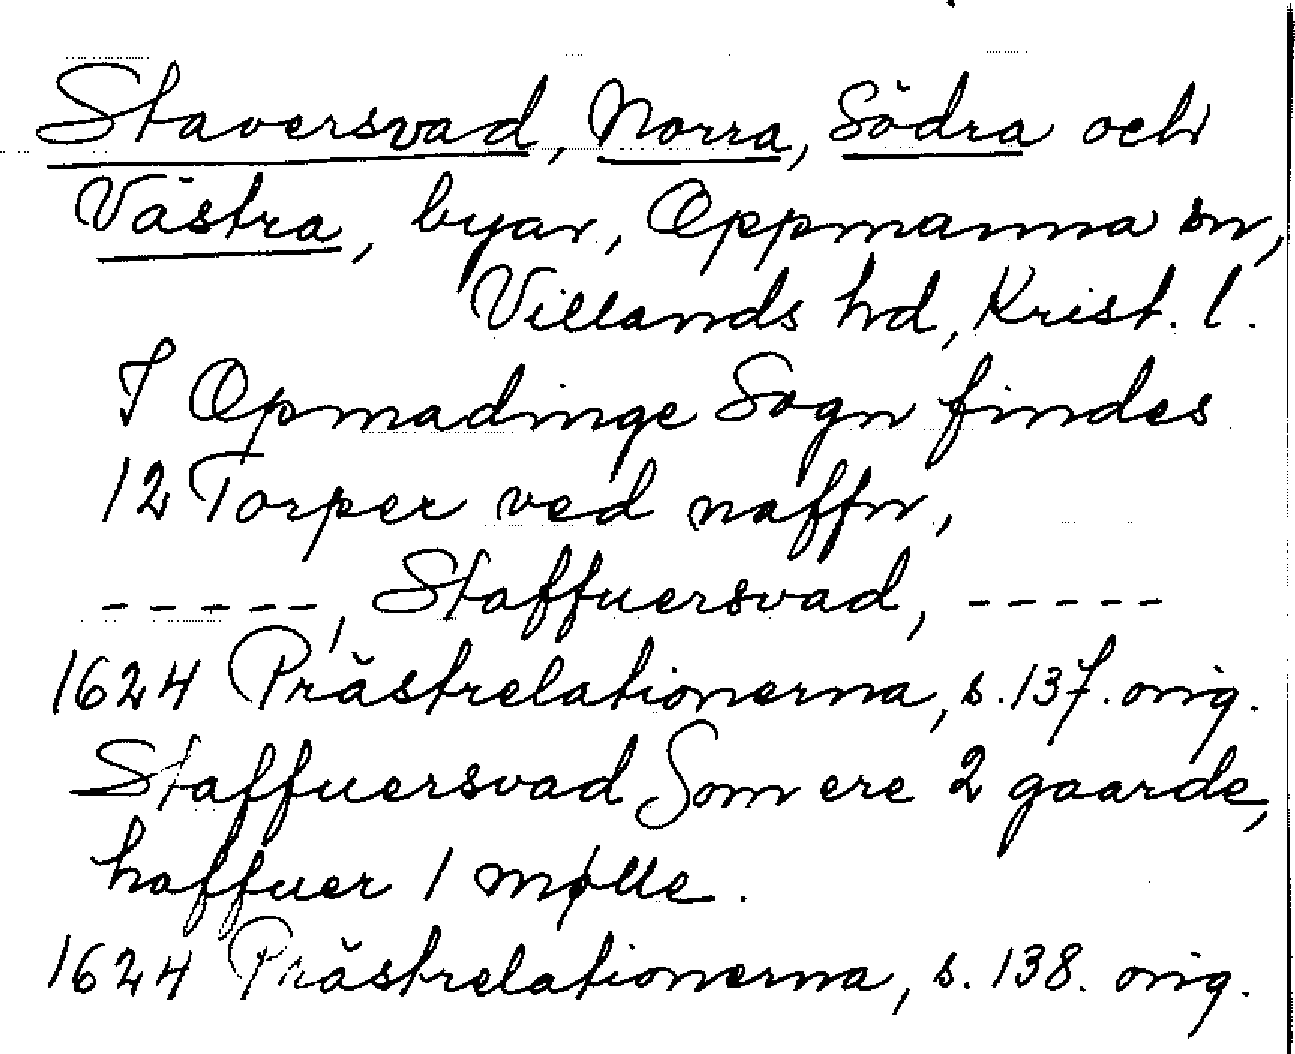 Staversvad, Norra, Södra och
Västra, byar, Oppmanna sn,
Villands hd, Krist. l.
I Opmadinge Sogn findes
12 Torper ved naffn,
-----, Staffuersvad, -----
1624 Prästrelationerna, s. 137. orig.
Staffuersvad Som ere 2 gaarde,
haffuer 1 mølle.
1624 Prästrelationerna, s. 138. orig.